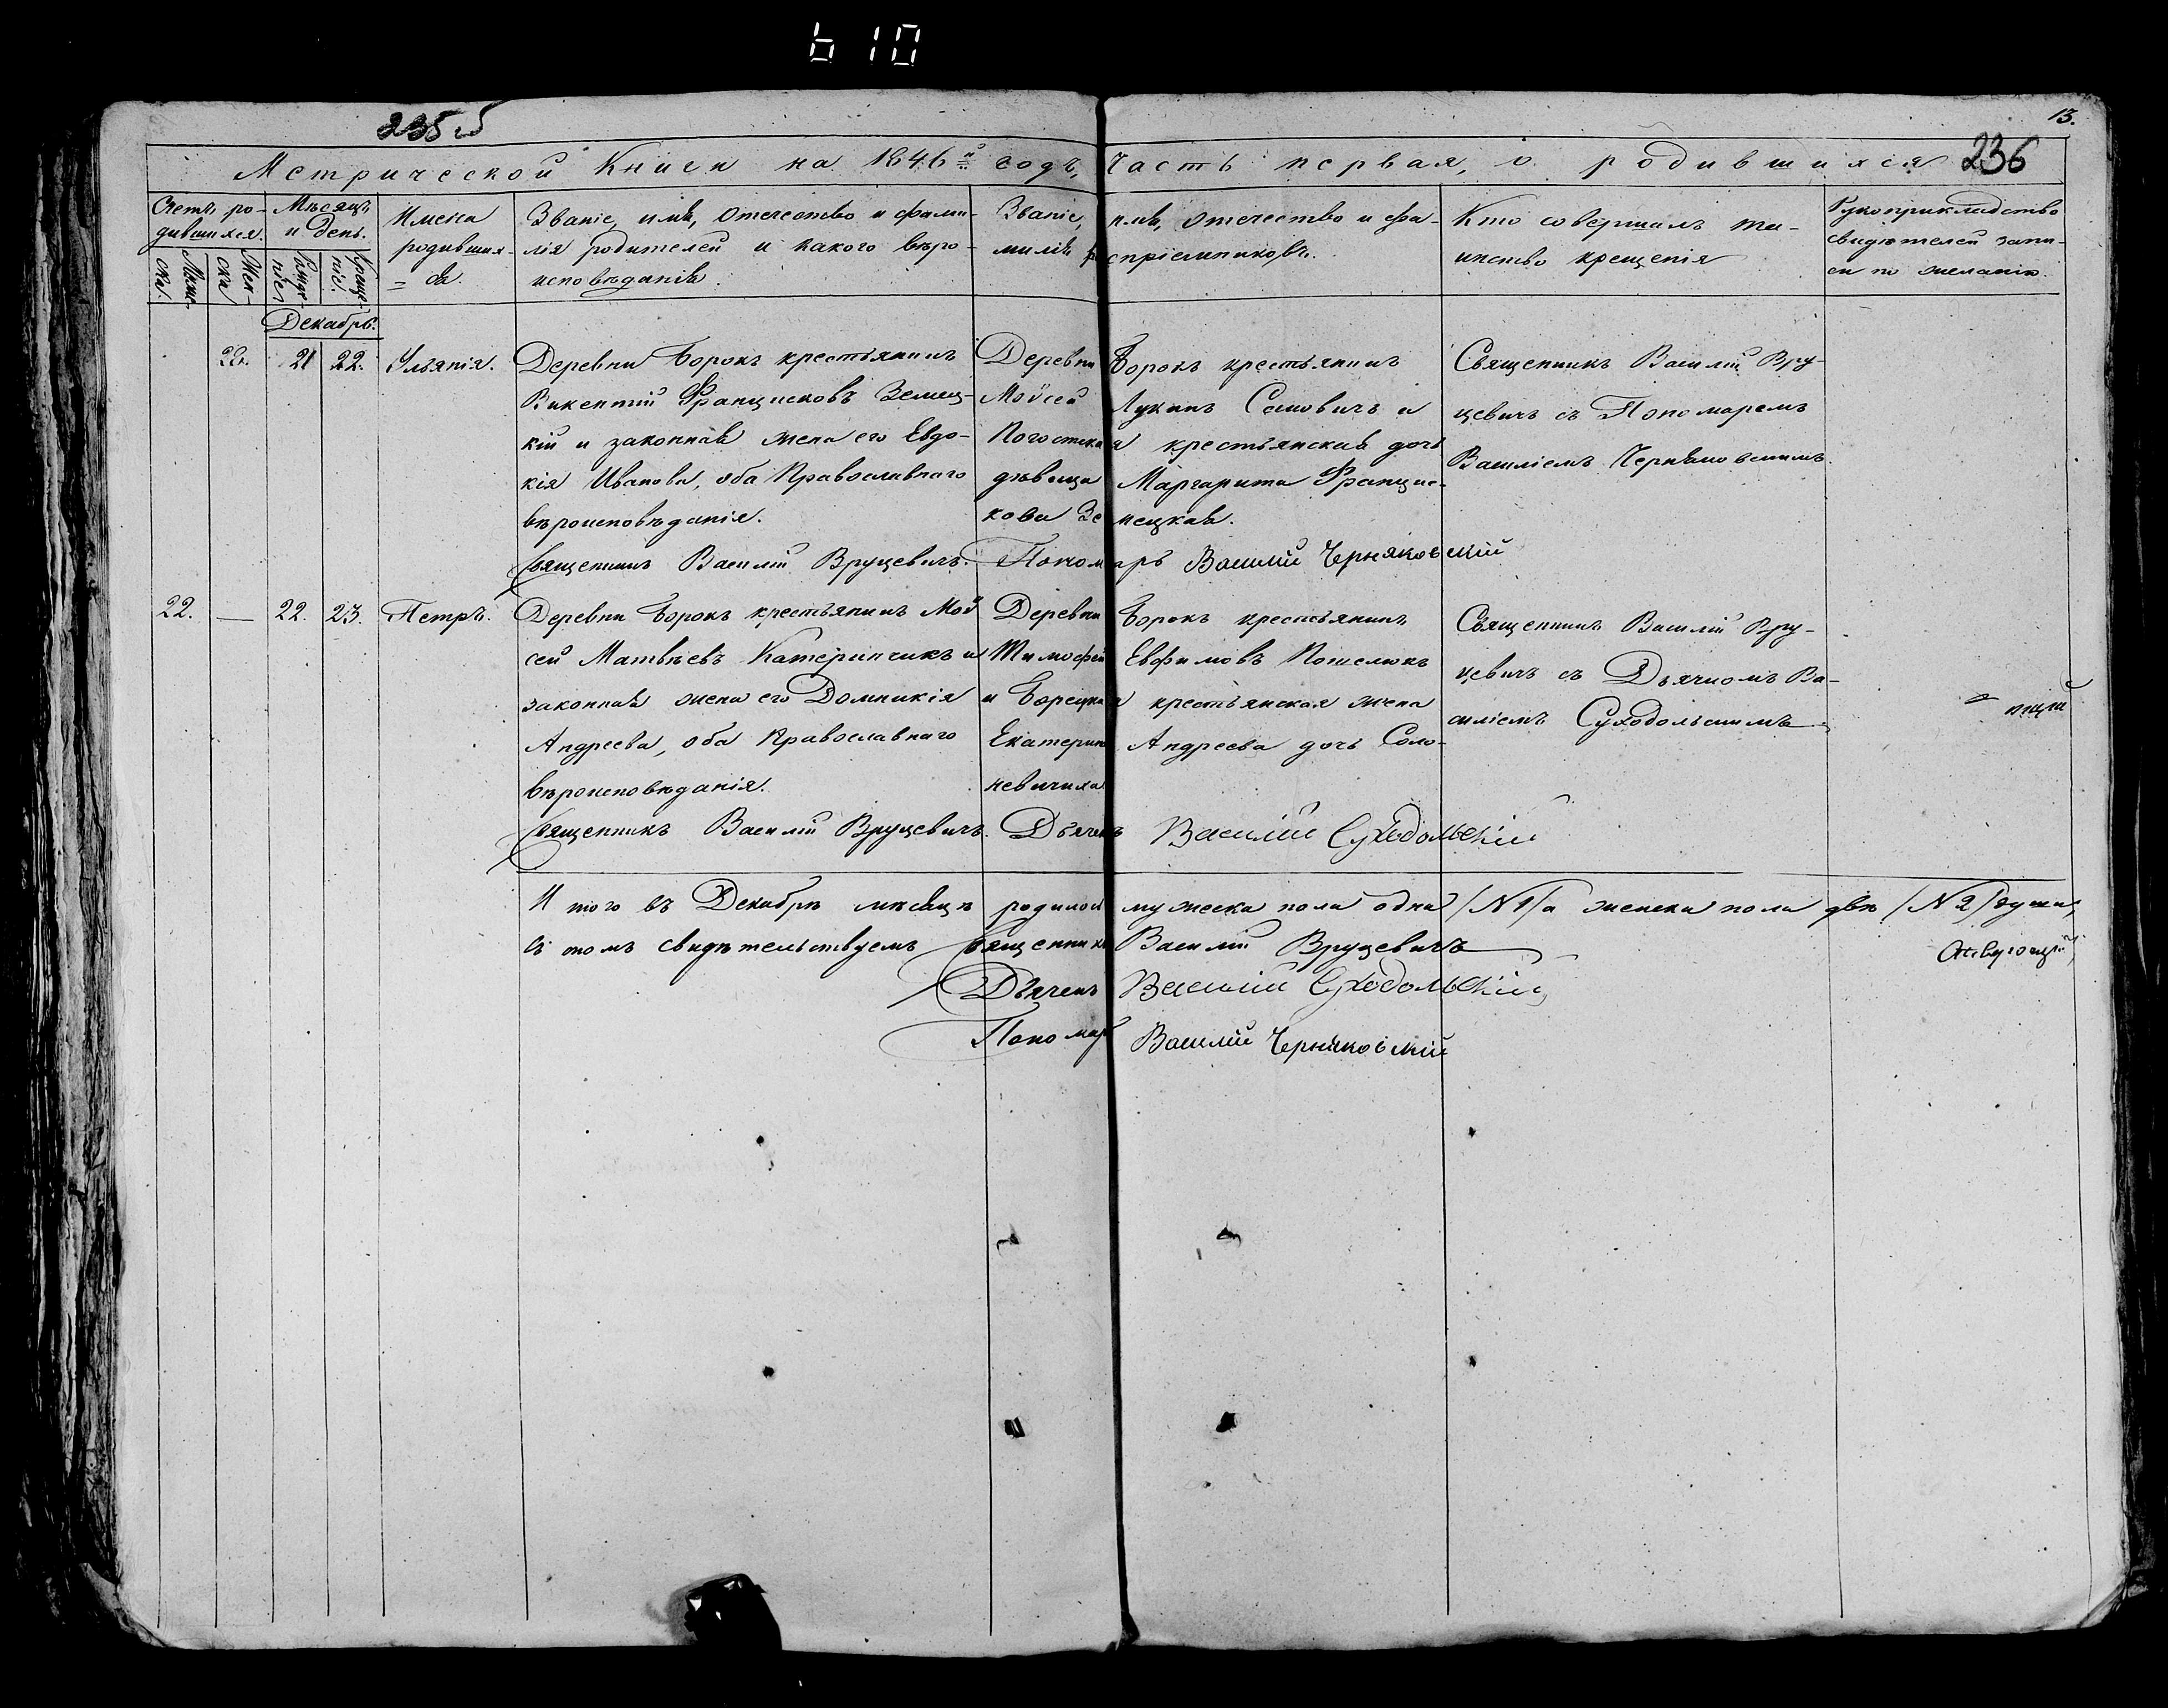 610
235 об
13.
236
Метрической Книги на 1846й годъ, Часть первая, о родившихся
Счетъ ро-
дившихся.
Мужс-
ска.
Жен-
ска
Мѣсяцъ
и день.
Рожде-
нiя
Креще-
нiе.
Имена
родивших-
ся.
Званiе, имя, отечество и фами-
лiя родителей и какого вѣро-
исповѣданiя.
Званiе, имя, отечество и фа-
милiя воспрiемниковъ.
Кто совершалъ та-
инство крещенiя
Рукоприкладство
свидѣтелей запи-
си по желанiю.
Декабрь.
22. 21 22. Ульянiя.
Деревни Борокъ крестьянинъ
Викентiй Францисковъ Земец-
кiй и законная жена его Евдо-
кiя Иванова, оба Православнаго
вѣроисповѣданiя.
Деревни Борокъ крестьянинъ
Мойсей Лукинъ Самовичъ и
Погостская крестьянская дочь
дѣвица Маргарита Францис-
кова Земецкая.
Священникъ Василiй Вру-
цевичъ съ Пономаремъ
Василiемъ Черняковскимъ.
Священникъ Василiй Вруцевичъ. Пономарь Василiй Черняковскiй
22. — 22. 23. Петръ.
Деревни Борокъ крестьянинъ Мой
сей Матвѣевъ Катеринчикъ и
законная жена его Домникiя
Андреева, оба Православнаго
вѣроисповѣданiя.
Деревни Борокъ крестьянинъ
Тимофей Евфимовъ Пошелюкъ
и Борецкая крестьянская жена
Екатерина Андреева дочь Соло-
невичиха
Священникъ Василiй Вру-
цевичъ съ Дьячкомъ Ва-
силiемъ Суходольскимъ
Священникъ Василiй Вруцевичъ. Дьячекъ Василiй Суходольскiй
И того въ Декабрѣ мѣсяцѣ родилось мужеска пола одна /N 1/ а женска пола двѣ /N 2/ души,
въ томъ свидѣтельствуемъ Священникъ Василiй Вруцевичъ
Дьячекъ Василiй Суходольскiй
Пономарь Василiй Черняковскiй